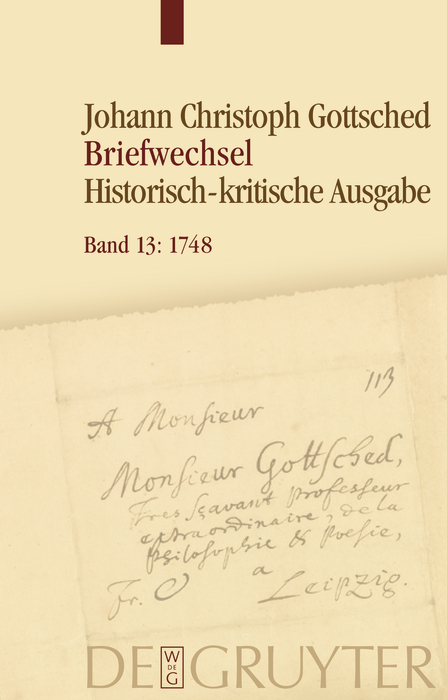 Johann Christoph Gottsched
Briefwechsel
Historisch-kritische Ausgabe
Band 13: 1748
113
A Monsieur
Monsieur Gottsched,
Tres sçavant Professeur
extraordinaire, de la
Philosophie & Poesie,
a
Fr. Leipzig.
DE GRUYTER
W
DE
G